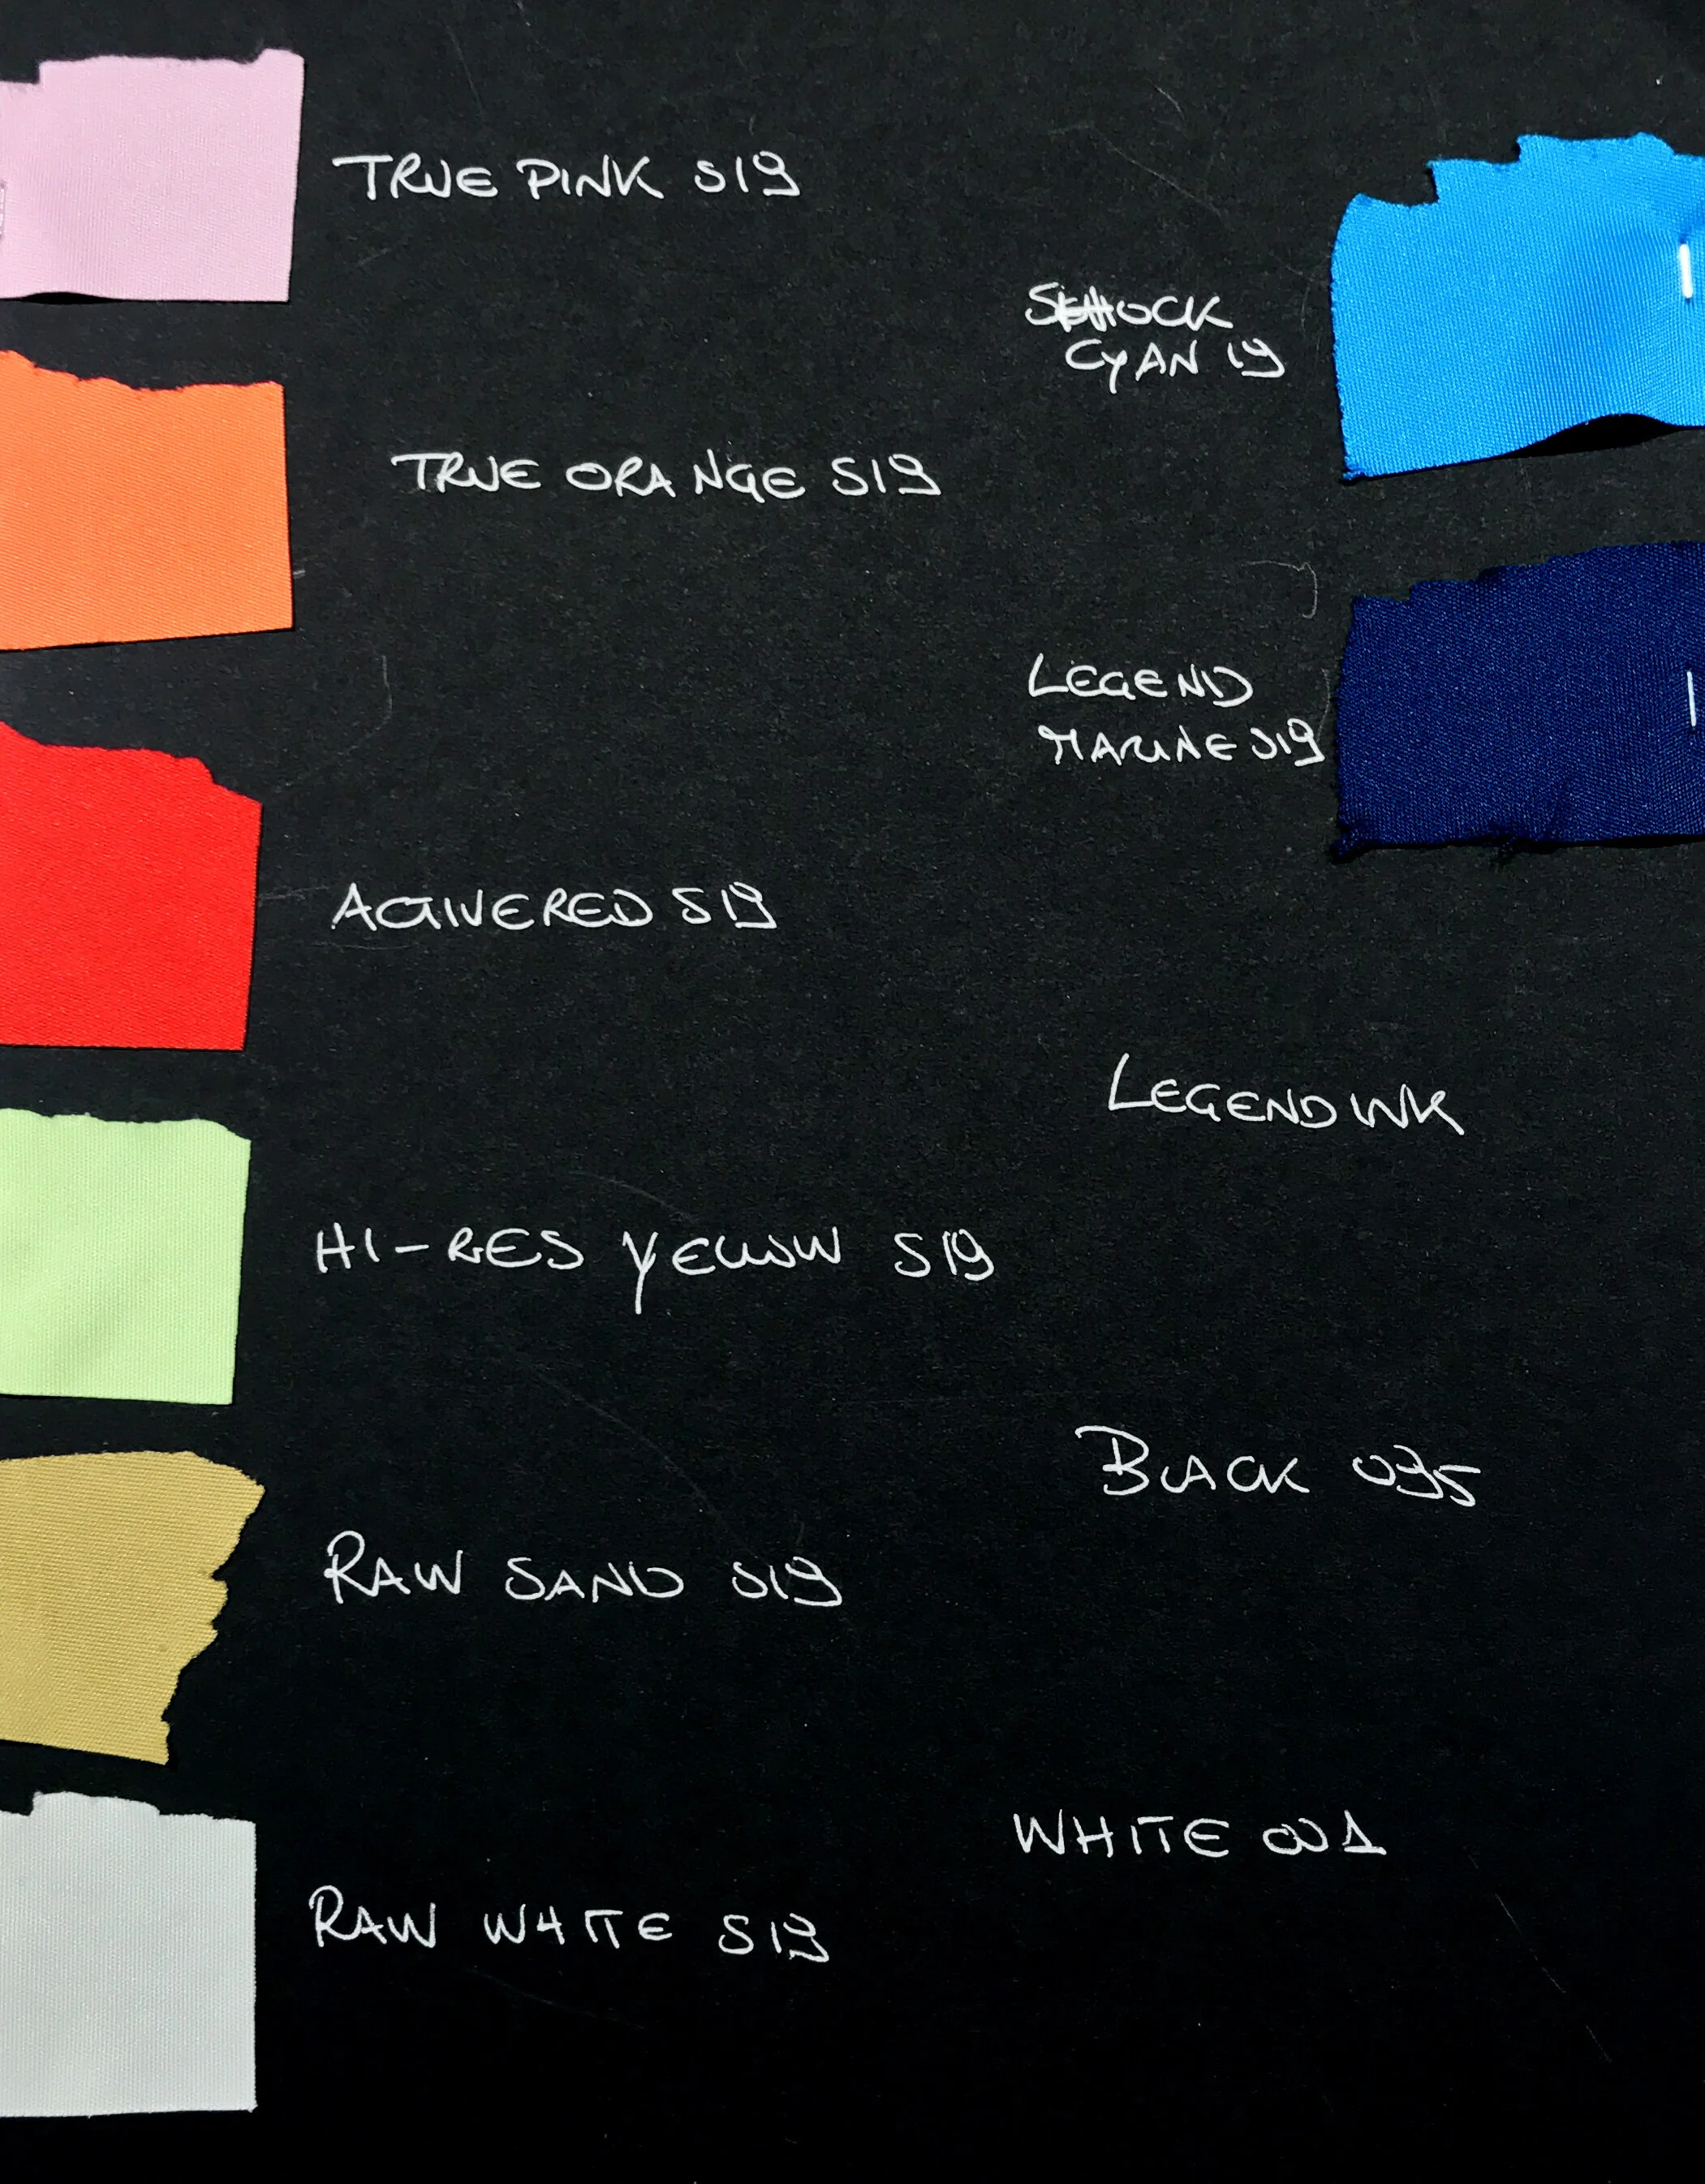 TRUE PINK S19
TRUE ORANGE S19
ACTIVERED S19
HI-RES YELLOW S19
RAW SAND S19
RAW WHITE S19
SHOCK
CYAN 19
LEGEND
MARINE S19
LEGEND INK
BLACK 095
WHITE 001